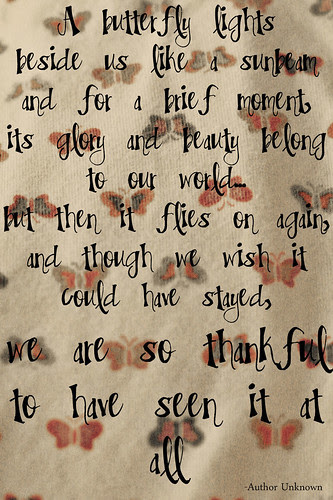 A butterfly lights
beside us like a sunbeam
and for a brief moment,
its glory and beauty belong
to our world...
but then it flies on again,
and though we wish it
could have stayed,
we are so thankful
to have seen it at
all
-Author Unknown